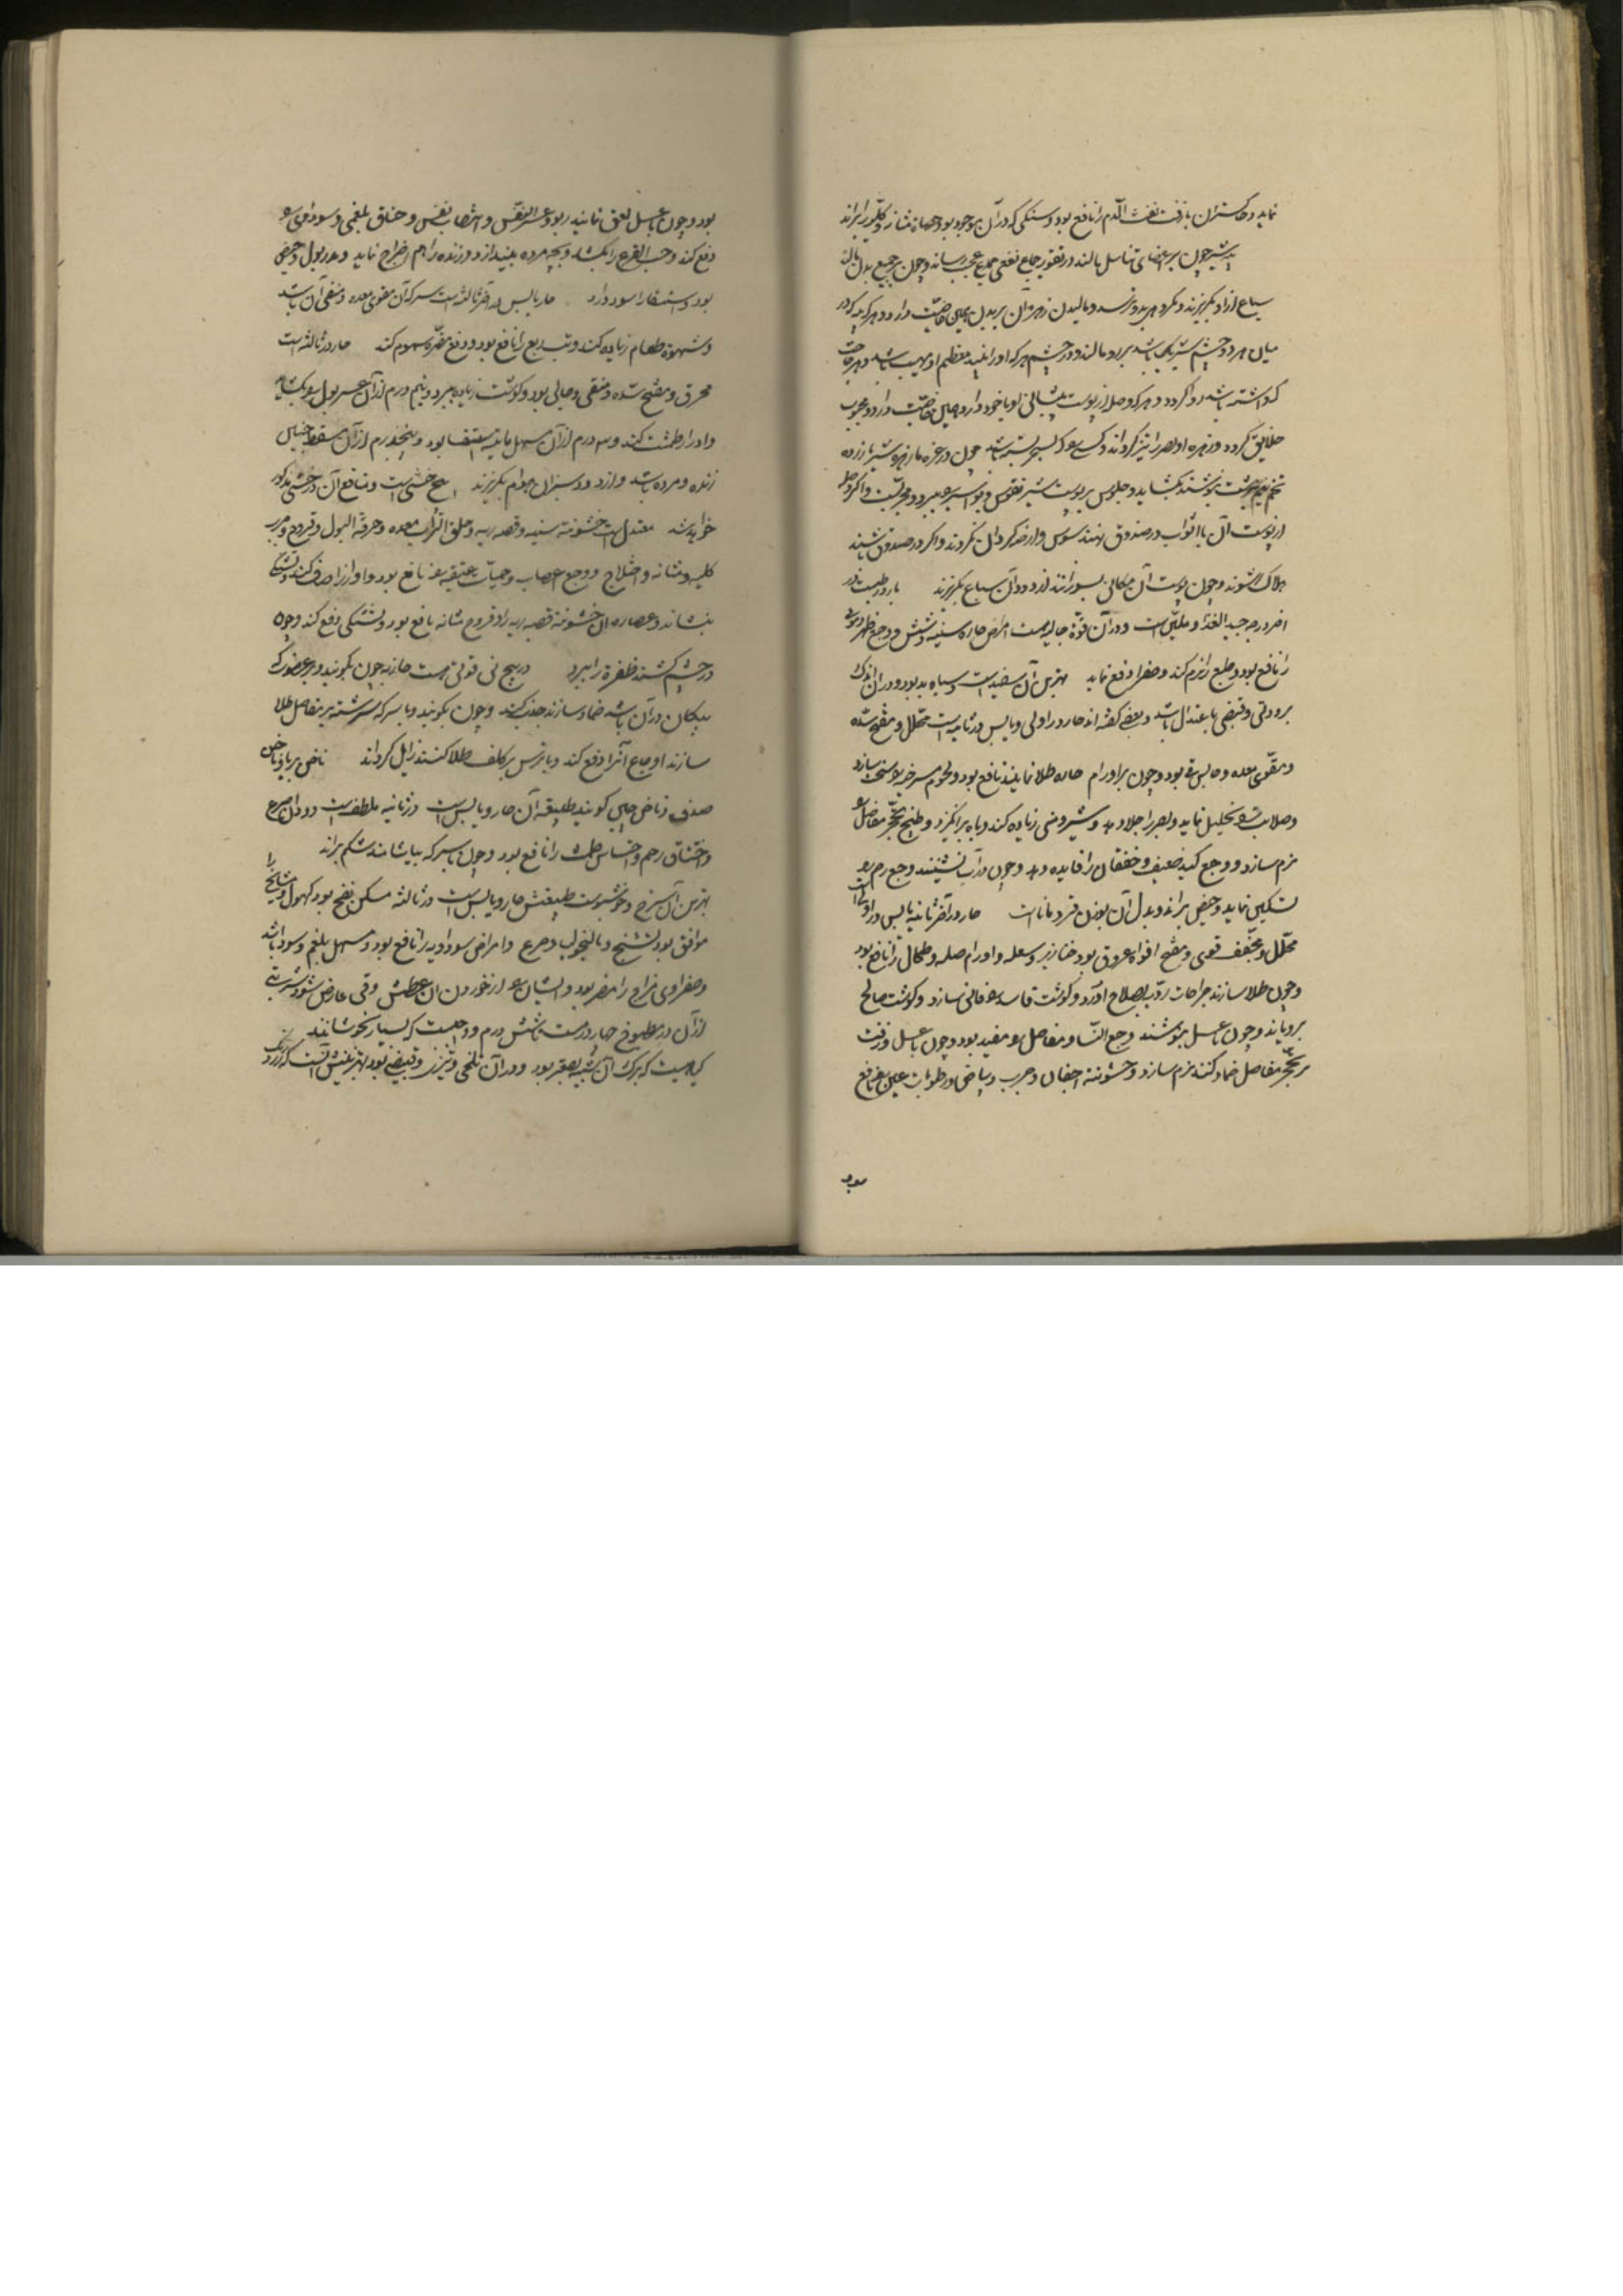 نماید و خاکستر آن با زفت نفث الدم را نافع بود و سنکی که در آن موجود بود حصاة مثانه و کلیه را براند
شیر چون بر اعضای تناسل بمالند در تقویت جماع نفعی عجیب رساند و چون بر جمیع بدن بمالند
سباع از او بکریزند و نترسد و مالیدن زهره آن بر بدن همین خاصیت دارد و هر که در
میان هر دو چشم شیر باشد بر رو مالد در چشم هر که او را بیند معظم و مهیب باشد و هر حاجت
که داشته باشد روا کردد و هر که وصله از پوست پیشانی او با خود دارد همین خاصیت دارد و محبوب
خلایق کردد و زهره او بصر را تیز کرداند و کسی که بسته باشد چون زهره شیر با زرده
تخم نیم برشت بنوشند بکشاید و جلوس بر پوست شیر نقرس و بواسیر ببرد و مجربست و اگر وصله
از پوست آن با اثواب در صندوق نهند سوس و ارضه کرد آن نکردند و اکر در صندوق باشند
هلاک شوند و چون پوست آن مکانی بسوزانند از دود آن سباع بکریزند بارد رطبست در
آخر درجه جید الغذا و ملین است و در آن قوة جالیه است امراض حاره سینه و شش و وجع ظهر دموی
را نافع بود و طبع را نرم کند و صفرا دفع نماید بهترین آن سفید است و سیاه بد بود و در آن اندک
برودتی و قبضی باعتدال باشد و بعضی کفته اند حار در اولی و یابس در ثانیه است محلل و مفتح سده
و مقوی معده و حابس قی بود و چون بر اورام حاره طلا نمایند نافع بود و لحوم مسترخیه سخت سازد
و صلابت تحلیل نماید و بصر را جلا دهد و شیر و منی زیاده کند و باه برانکیزد و طبیخ تحجر مفاصل
نرم سازد و وجع کبد ضعیف و خفقان را فایده دهد و چون در آب نشینند وجع رحم
تسکین نماید و حیض براند و بدل آن بوزن قردماناست حار در آخر ثانیه یابس در اولی است
محلل و مجفف قوی و مفتح افواه عروق بود خنازیر و سعله و اورام صلبه و طحال را نافع بود
و چون طلا سازند جراحات ردیه بصلاح آورد و کوشت فاسد فانی سازد و کوشت صالح
برویاند و چون با عسل بنوشند وجع النسا و مفاصل مفید بود و چون با عسل و زفت
بر تحجر مفاصل ضماد کنند نرم سازد و خشونة اجفان و جرب و بیاض و رطوبات عین نافع
بود
بود و چون با عسل لعق نمایند ربو و عسر النفس و انتصاب نفس و خناق بلغمی و سوداوی
دفع کند و حب القرع را بکشد و بچه مرده بیندازد و زنده را هم اخراج نماید و مدر بول و حیض
بود و استسقا را سود دارد حار یابس در آخر ثالثه است سرکه آن مقوی معده و منقی آن باشد
و شهوة طعام زیاده کند و تب ربع را نافع بود و دفع مضرة سموم کند حار در ثالثه است
محرق و مفتح سده و منقی و جالی بود و کوشت زیاده ببرد و نیم درم از آن عسر بول بکشاید
و ادرار طمث کند و سه درم از آن مسهل مائیة استسقا بود و پنجدرم از آن مسقط جنین
زنده و مرده باشد و از دود سبز آن هوام بکریزند خشی است و منافع آن در خشی مذکور
خواهد شد معتدل است خشونة سینه و قصبه ریه و حلق التهاب معده و حرقة البول و قروح و جرب
کلیه و مثانه و اختلاج و وجع اعصاب و حمیات عتیقه نافع بود و آواز را صاف کند و تشنکی
بنشاند و عصاره آن خشونة قصبه ریه را و قروح مثانه نافع بود و تشنکی دفع کند و چون
در چشم کشند ظفره را ببرد در بیخ نی قوتی هست جاذبه چون بکوبند و بر عضوی که
پیکان در آن باشد ضماد سازند جذب کند و چون بکوبند و با سرکه سرشته بر مفاصل طلا
سازند اوجاع آنرا دفع کند و با ترمس بر کلف طلا کنند زایل کرداند ناخن پریا و ناخن
صدف و ناخن جنی کویند طبیعة آن حار و یابس است در ثانیه ملطفست دود آن صرع
و اختناق رحم و احتباس طمث را نافع بود و چون با سرکه بیاشامند شکم براند
بهترین آن سرخ و خوشبوست طبیعتش حار و یابس است در ثالثه مسکن نفخ بود کهول و مشایخ را
موافق بود تشنج و مالیخولیا و صرع و امراض سوداویه را نافع بود و مسهل بلغم و سودا باشد
و صفراوی مزاج را مضر بود و ایشان از خوردن آن عطش و قی عارض شود شربتی
از آن در مطبوخ چهار درمست تا شش درم و واجبست که بسیار نجوشانند
کیاهیست که برک آن شبیه بصعتر بود و در آن تلخی و تیزی و قبضی بود بهترینش آنست که زرد رنک